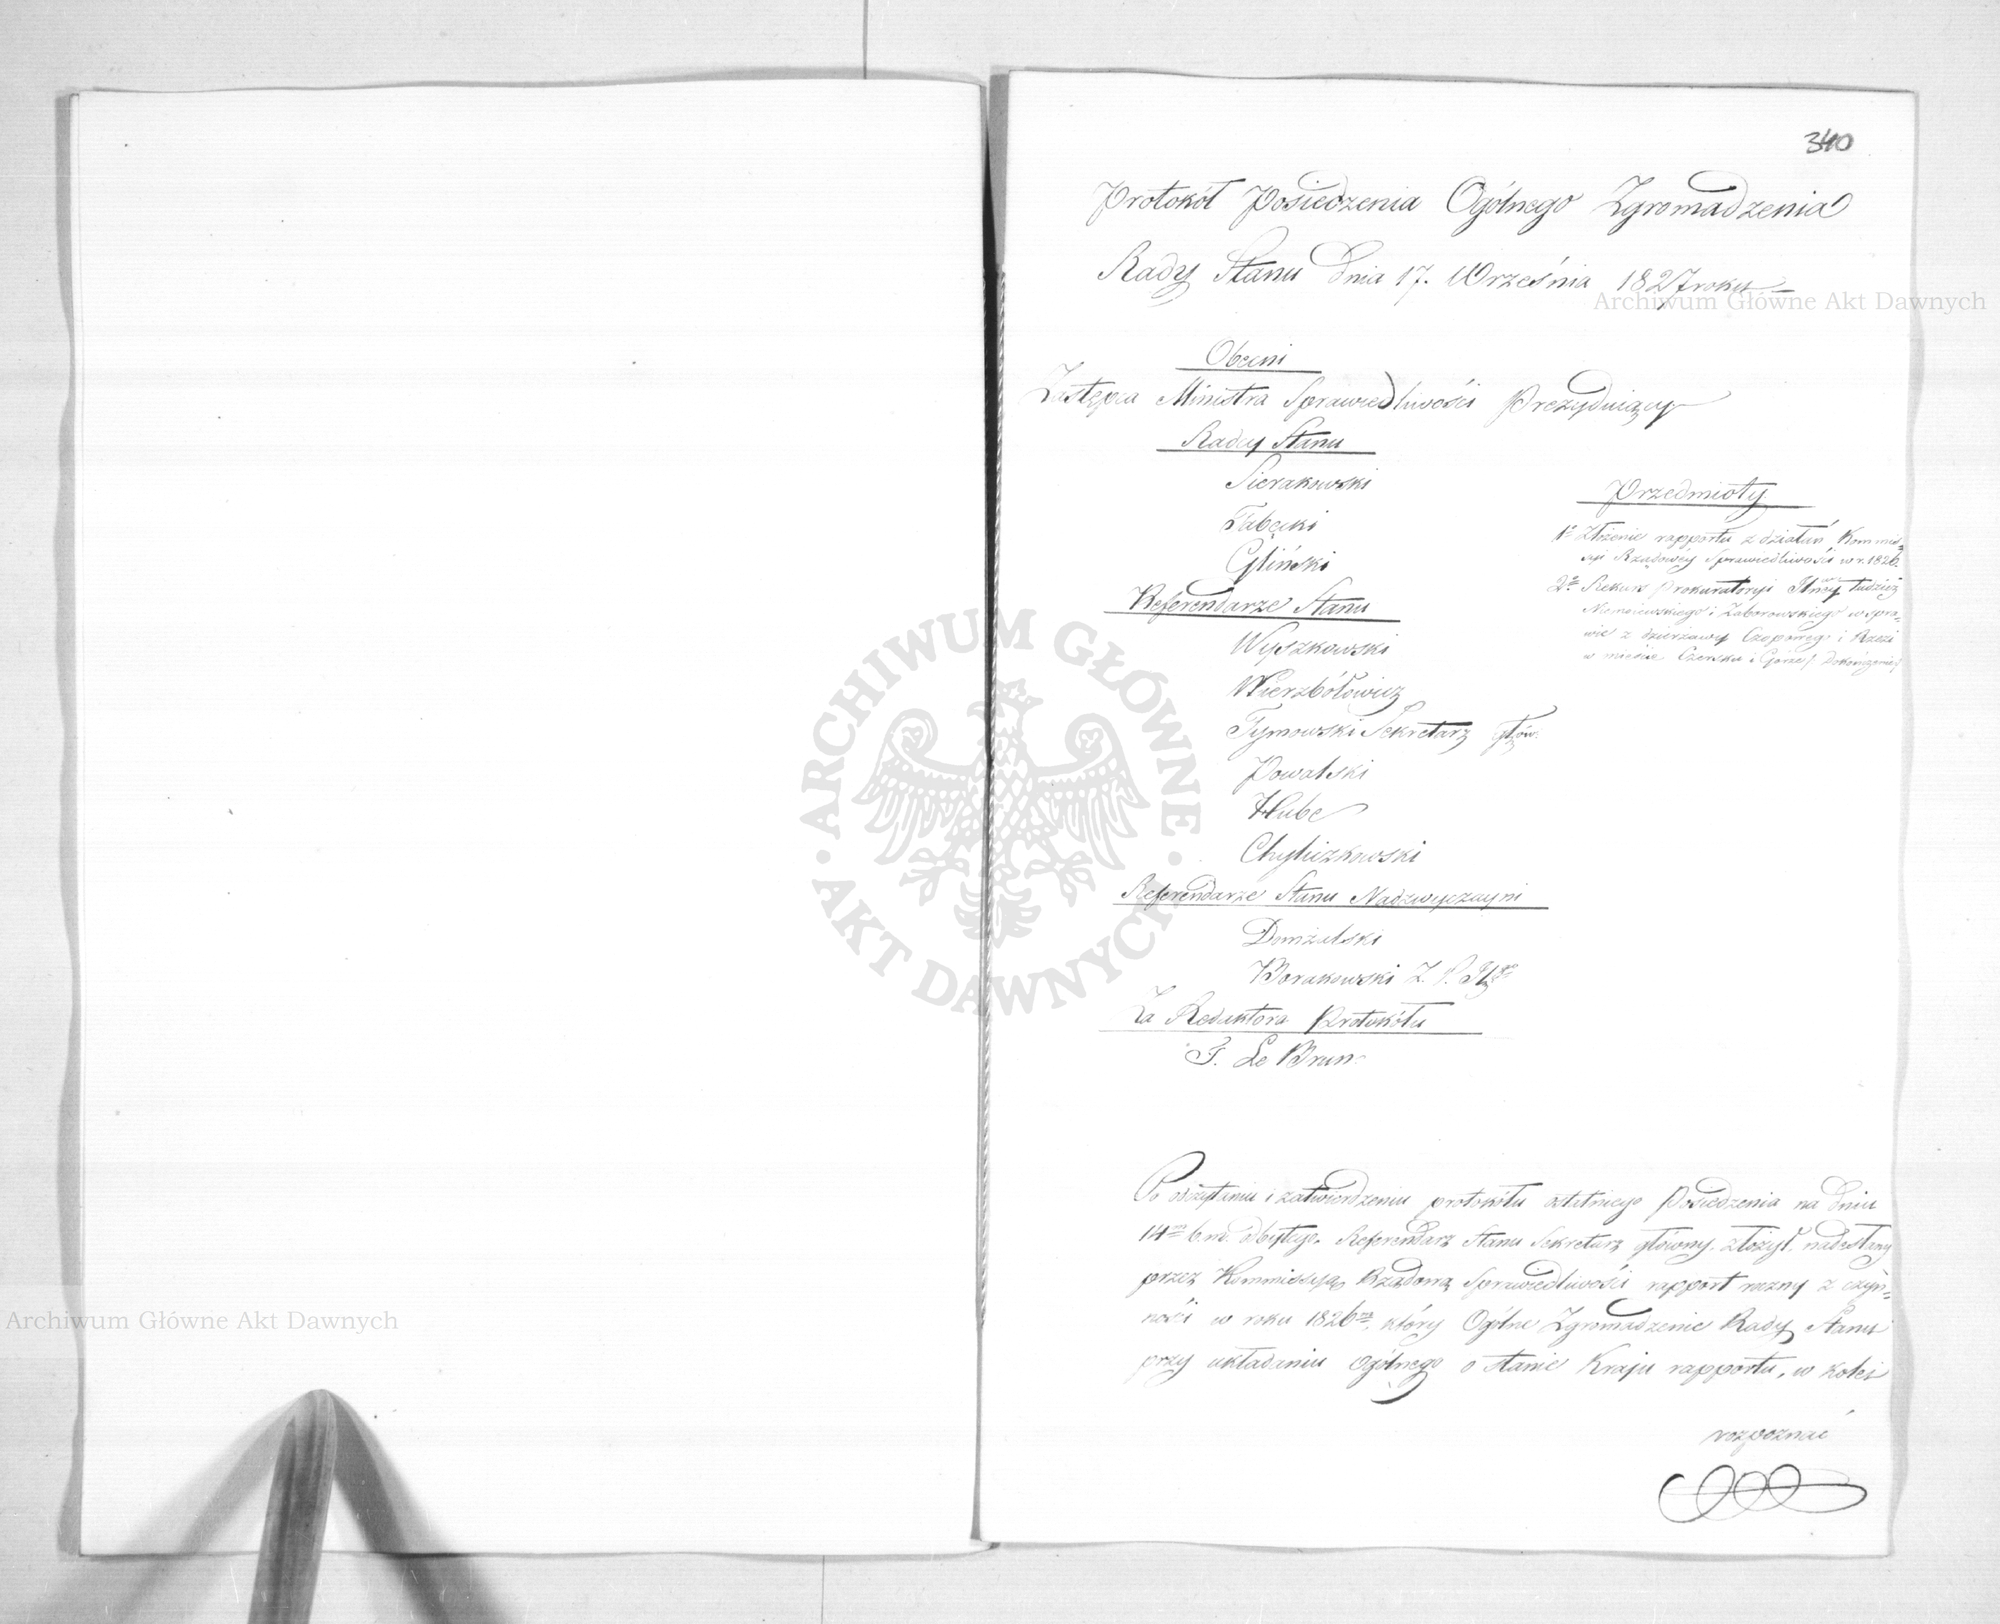 340
Protokół Posiedzenia Ogólnego Zgromadzenia
Rady Stanu Dnia 17. Września 1827 roku
Archiwum Główne Akt Dawnych
Obecni
Zastępca Ministra Sprawiedliwości Prezydujący
Radcy Stanu
Sierakowski
Łabęcki
Gliński
Przedmioty
1e Złożenie rapportu z działań Kommis=
syi Rządowéy Sprawiedliwości w r. 1826.
2e Rekurs Prokuratoryi tudzież
i Zaborowskiego w spra=
wie z dzierżawy Czopowego i Rzezi
w mieście Czersku i Górze / Dokończenie/
Referendarze Stanu
Wyszkowski
Wierzbółowicz
Tymowski Sekretarz Głów.
Powalski
Hube
Chyliczkowski
Referendarze Stanu Nadzwyczayni
Domżalski
Borakowski Z. P.
Za Redaktora Protokółu
F. Le Brun
ARCHIWUM GŁÓWNE
AKT DAWNYCH
Po odczytaniu i zatwierdzeniu protokółu ostatniego Posiedzenia na dniu
14m b.m. odbytego, Referendarz Stanu Sekretarz główny, złożył, nadesłany
przez Kommissyą Rządową Sprawiedliwości rapport roczny z czyn=
ności w roku 1826m, który Ogólne Zgromadzenie Rady Stanu
Archiwum Główne Akt Dawnych
przy układaniu ogólnego o stanie Kraju rapportu, w kolei
rozpoznać